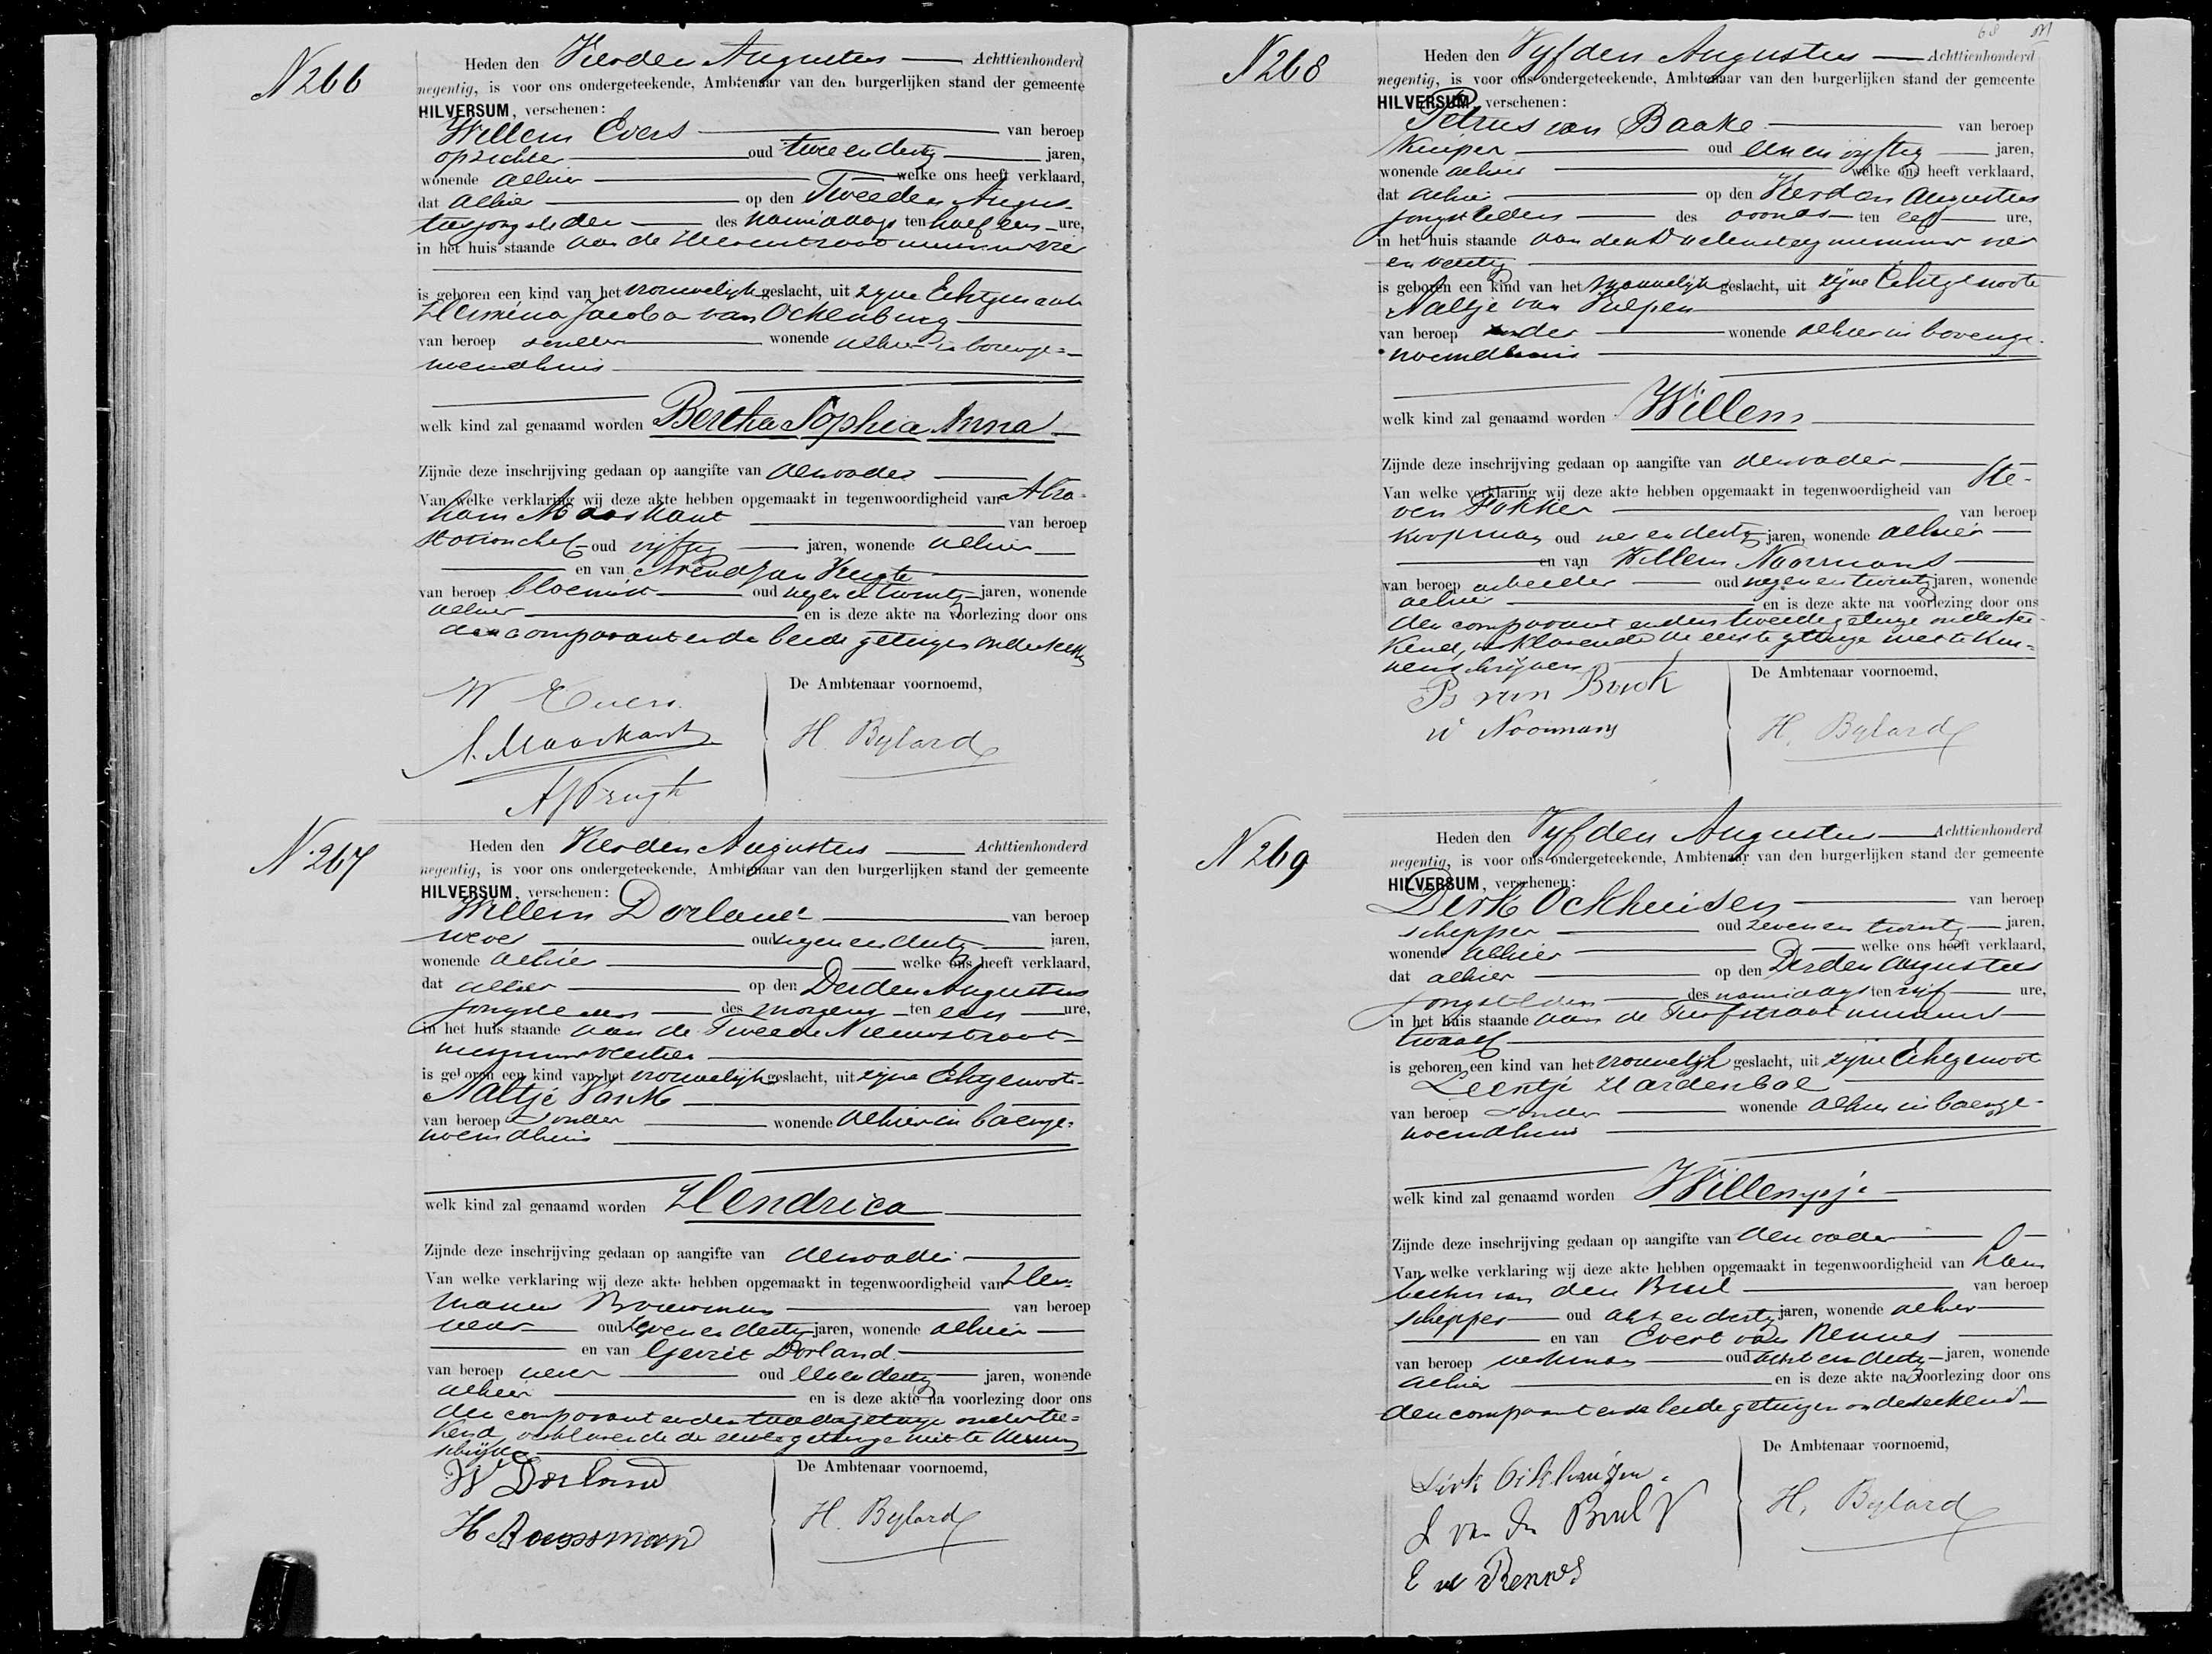 N 266
Heden den Vierden Augustus Achttienhonderd
negentig, is voor ons ondergeteekende, Ambtenaar van den burgerlijken stand der gemeente
HILVERSUM, verschenen:
Willem Evers van beroep
opzichter oud twee en dertig jaren,
wonende alhier welke ons heeft verklaard,
dat alhier op den Tweeden Augus-
tus jongstleden des namiddags ten half een ure,
in het huis staande aan de Heerenstraat nummer vier
is geboren een kind van het vrouwelijk geslacht, uit zijne Echtgenoote
Hermina Jacoba van Ockenburg
van beroep zonder wonende alhier in bovenge=
noemd huis
welk kind zal genaamd worden Bertha Sophia Anna
Zijnde deze inschrijving gedaan op aangifte van den vader
Van welke verklaring wij deze akte hebben opgemaakt in tegenwoordigheid van Abra-
ham Maaskant van beroep
stationchef oud vijftig jaren, wonende alhier
en van Arend Jan
van beroep bloemist oud negen en twintig jaren, wonende
alhier en is deze akte na voorlezing door ons
den comparant en de beide getuigen onderteekend
W Evers
A. Maaskant
De Ambtenaar voornoemd,
H. Bylard
N. 267
Heden den Vierden Augustus Achttienhonderd
negentig, is voor ons ondergeteekende, Ambtenaar van den burgerlijken stand der gemeente
HILVERSUM, verschenen:
Willem Dorland van beroep
wever oud negen en dertig jaren,
wonende alhier welke ons heeft verklaard,
dat alhier op den Derden Augustus
jongstleden des morgens ten een ure,
in het huis staande aan de Tweede Nieuwstraat
nummer veertien
is geboren een kind van het vrouwelijk geslacht, uit zijne Echtgenoote
Aaltje Vank
van beroep zonder wonende alhier in bovenge=
noemd huis
welk kind zal genaamd worden Hendrica
Zijnde deze inschrijving gedaan op aangifte van den vader
Van welke verklaring wij deze akte hebben opgemaakt in tegenwoordigheid van Her=
manus Bouwman van beroep
wever oud zeven en dertig jaren, wonende alhier
en van Gerrit Dorland
van beroep wever oud een en dertig jaren, wonende
alhier en is deze akte na voorlezing door ons
den comparant en den tweede getuige ondertee=
kend, verklarende de eerste getuige niet te kunnen
schrijven
W Dorland
H Bouwman
De Ambtenaar voornoemd,
H. Bylard
N 268
Heden den Vyfden Augustus Achttienhonderd
negentig, is voor ons ondergeteekende, Ambtenaar van den burgerlijken stand der gemeente
HILVERSUM, verschenen:
Petrus van Baake van beroep
Kuiper oud een en vijftig jaren,
wonende alhier welke ons heeft verklaard,
dat alhier op den Vierden Augustus
jongstleden des avonds ten elf ure,
in het huis staande aan den nummer vier
en veertig
is geboren een kind van het mannelijk geslacht, uit zijne Echtgenoote
Aaltje van Pulpen
van beroep zonder wonende alhier in bovenge-
noemd huis
welk kind zal genaamd worden Willem
Zijnde deze inschrijving gedaan op aangifte van den vader
Van welke verklaring wij deze akte hebben opgemaakt in tegenwoordigheid van Ste-
ven Fokker van beroep
koopman oud vier en dertig jaren, wonende alhier
en van Willem Noormans
van beroep arbeider oud negen en twintig jaren, wonende
alhier en is deze akte na voorlezing door ons
den comparant en den tweede getuige onderteе-
kend, verklarende de eerste getuige niet te kun=
nen schrijven
P van Baak
W Noormans
De Ambtenaar voornoemd,
H. Bylard
N 269
Heden den Vyfden Augustus Achttienhonderd
negentig, is voor ons ondergeteekende, Ambtenaar van den burgerlijken stand der gemeente
HILVERSUM, verschenen:
Dirk Ockhuisen van beroep
schepper oud zeven en twintig jaren,
wonende alhier welke ons heeft verklaard,
dat alhier op den Derden Augustus
jongstleden des namiddags ten vijf ure,
in het huis staande aan de Turfstraat nummer
twaalf
is geboren een kind van het vrouwelijk geslacht, uit zijne Echtgenoot
Leentje Hardenbol
van beroep zonder wonende alhier in bovenge-
noemd huis
welk kind zal genaamd worden Willempje
Zijnde deze inschrijving gedaan op aangifte van den vader
Van welke verklaring wij deze akte hebben opgemaakt in tegenwoordigheid van Lam
bertus van den Brul van beroep
schepper oud acht en dertig jaren, wonende alhier
en van Evert van Rennes
van beroep werkman oud acht en dertig jaren, wonende
alhier en is deze akte na voorlezing door ons
den comparant en de beide getuigen onderteekend
Dirk Okhuizen.
L van den Brul
E v Rennes
De Ambtenaar voornoemd,
H. Bylard